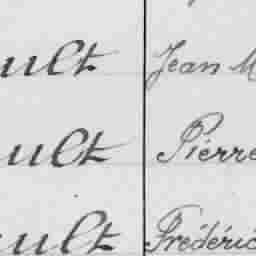 ult Jean M
ult Pierre
ult Frédéric